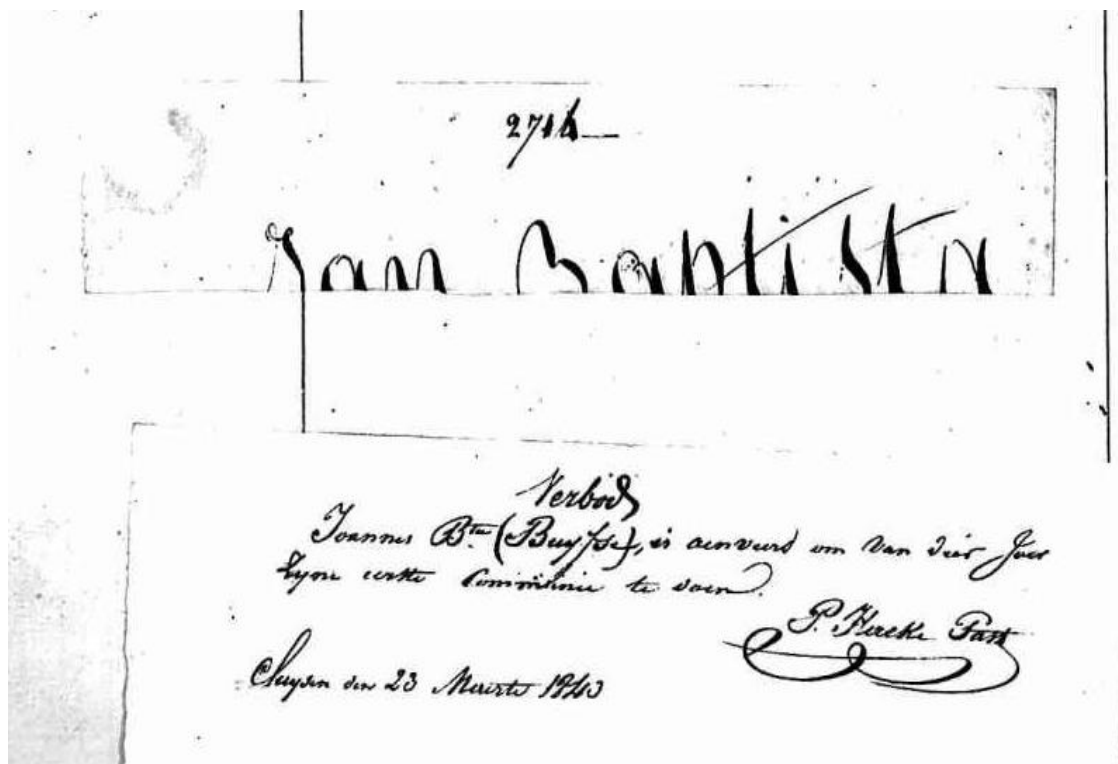 Jan Baptista
Verbod
Joannes B.te (Buysse), is aenveerd om van dees Jaer
Zyne eerste Communie te doen.
P. Hercke Past
Cluysen den 23 Maerte 1840